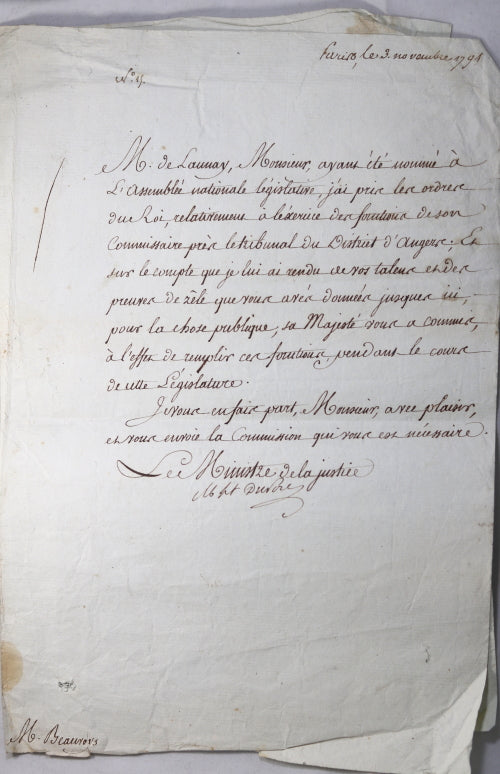 Paris, le 3. novembre 1791
N.º 
M. de Launay, Monsieur, ayant été nommé à
L'Assemblée nationale législative, j'ai pris les ordres
du Roi, relativement à l'éxercice des fonctions de son
Commissaire près le tribunal du District d'Angers, Et
sur le compte que je lui ai rendu de vos talens et des
preuves de zèle que vous avés données jusques ici,
pour la chose publique, sa Majesté vous a commis,
à l'effet de remplir ces fonctions, pendant le cours
de cette Législature.
Je vous en fais part, Monsieur, avec plaisir,
et vous envoie la Commission qui vous est nécessaire.
Le Ministre de la justice
M. Beauvoys